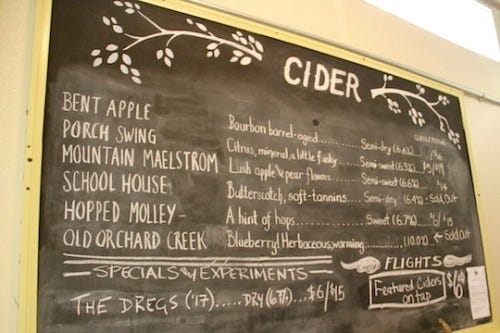 CIDER
glass/bomb
BENT APPLE Bourbon barrel-aged.......... Semi-dry (6.6%)
PORCH SWING Citrus, mineral, a little funky....... Semi-sweet (6.3%)
MOUNTAIN MAELSTROM Lush apple & pear flavors....... Semi-sweet (6%)
SCHOOL HOUSE Butterscotch, soft-tannins.... Semi-dry (6.4%) - Sold Out
HOPPED MOLLEY - A hint of hops............ Sweet (6.7%) $6/$15
OLD ORCHARD CREEK Blueberry! Herbaceous, warming........ (10.0%) ← Sold Out
SPECIALS and EXPERIMENTS
THE DREGS ('17)..... DRY (6%)... $6/$15
FLIGHTS
Featured Ciders on tap $16